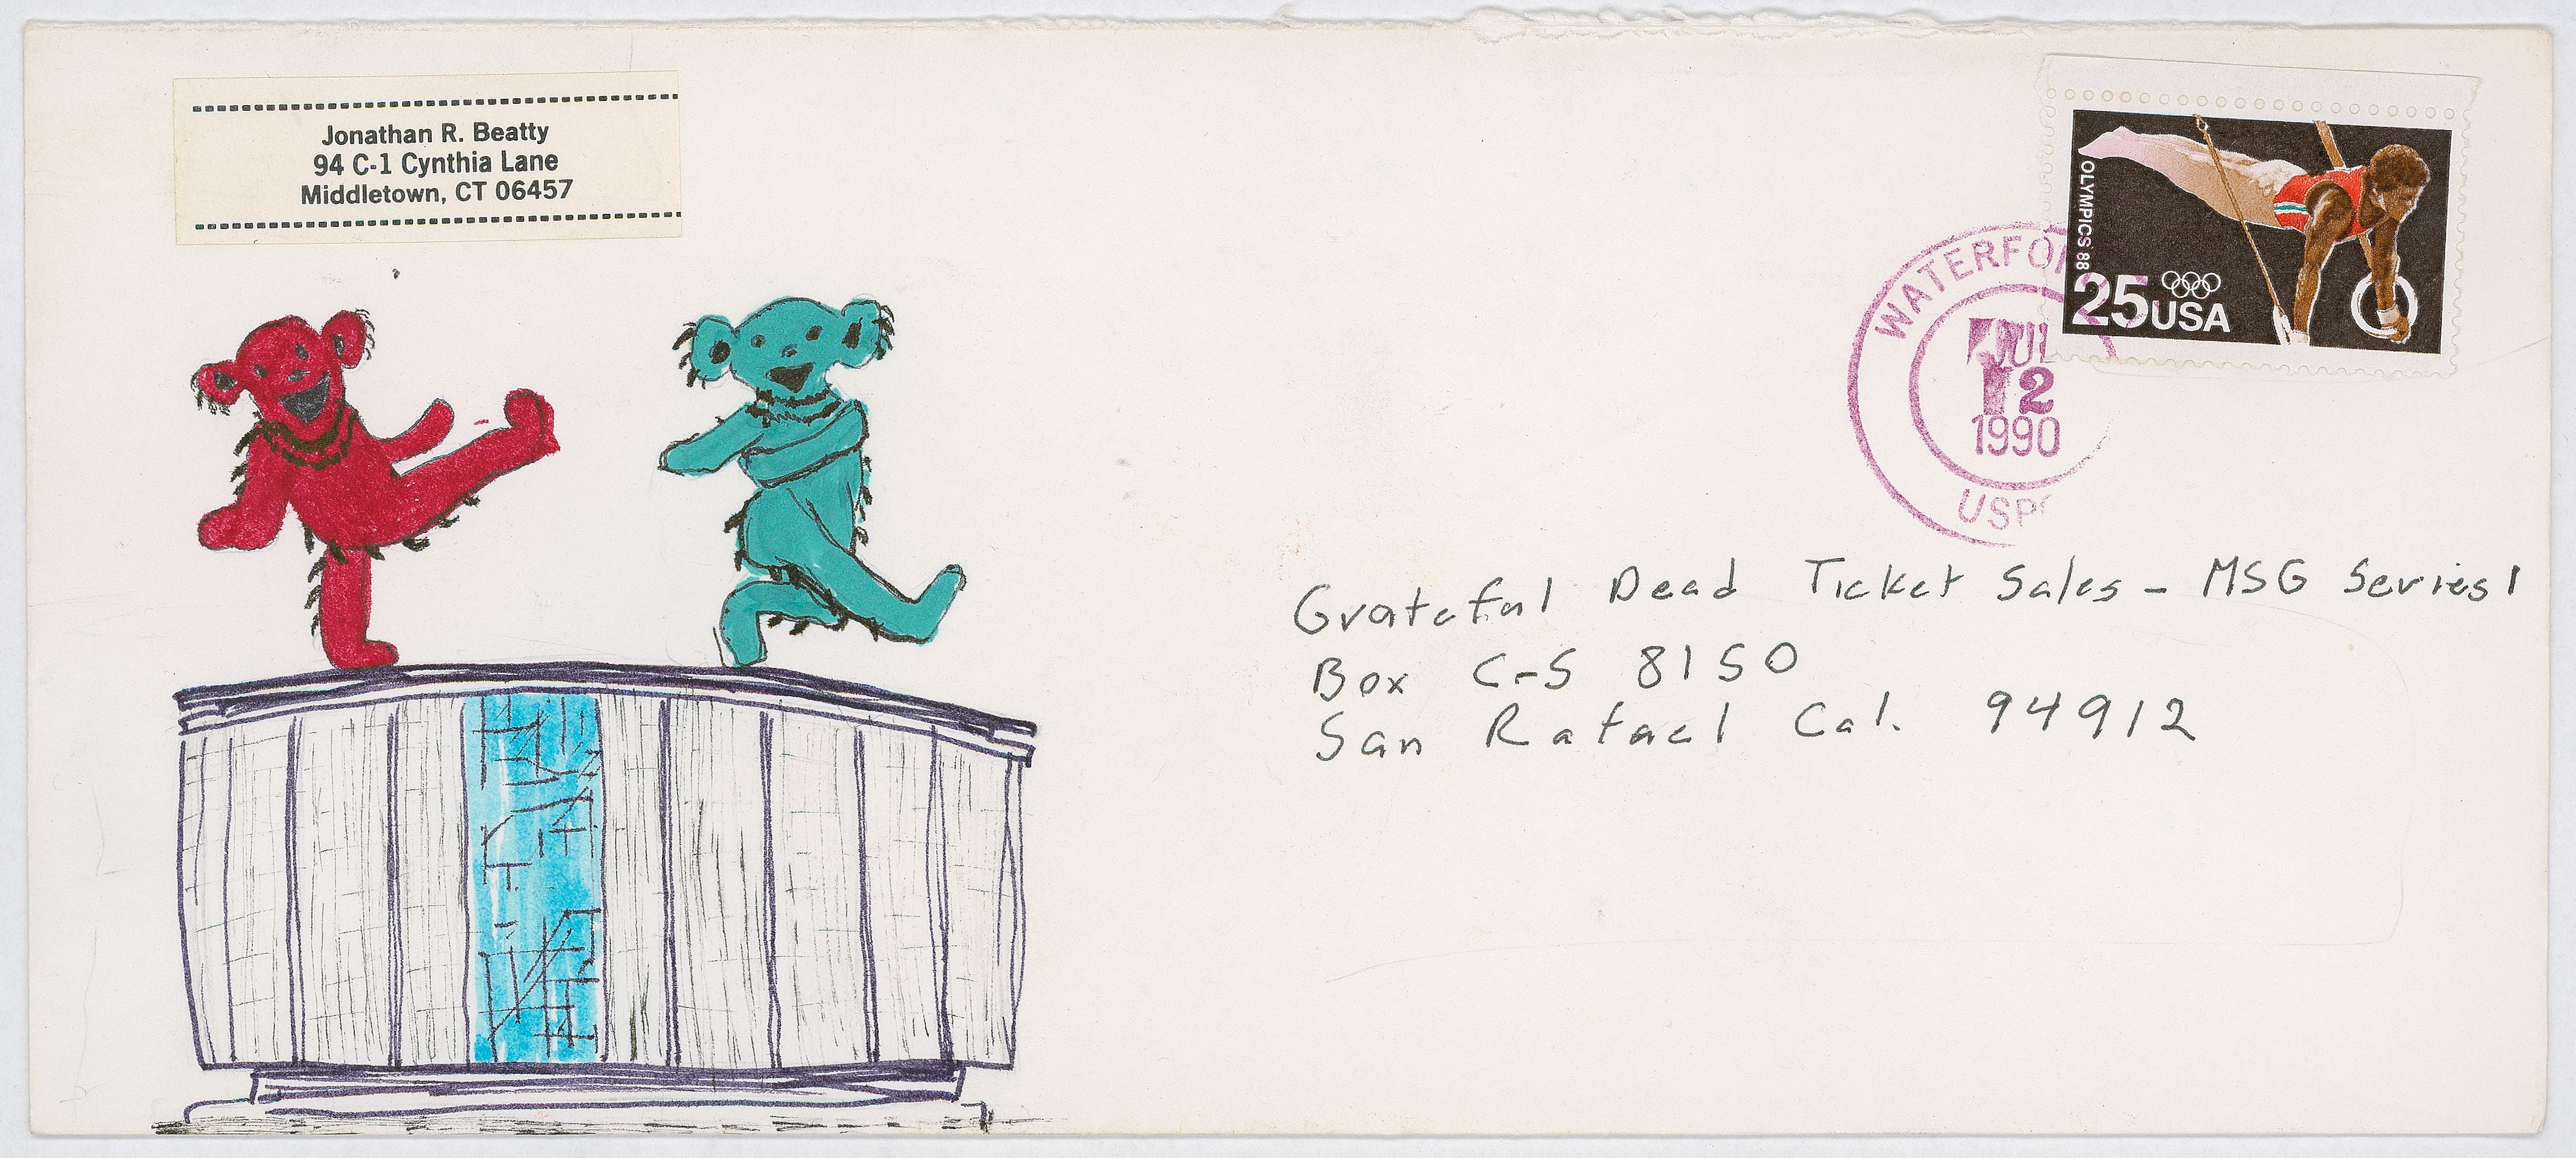 Jonathan R. Beatty
94 C-1 Cynthia Lane
Middletown, CT 06457
OLYMPICS 88
25 USA
JUL
12
1990
Grateful Dead Ticket Sales - MSG Series 1
Box C-S 8150
San Rafael Cal. 94912